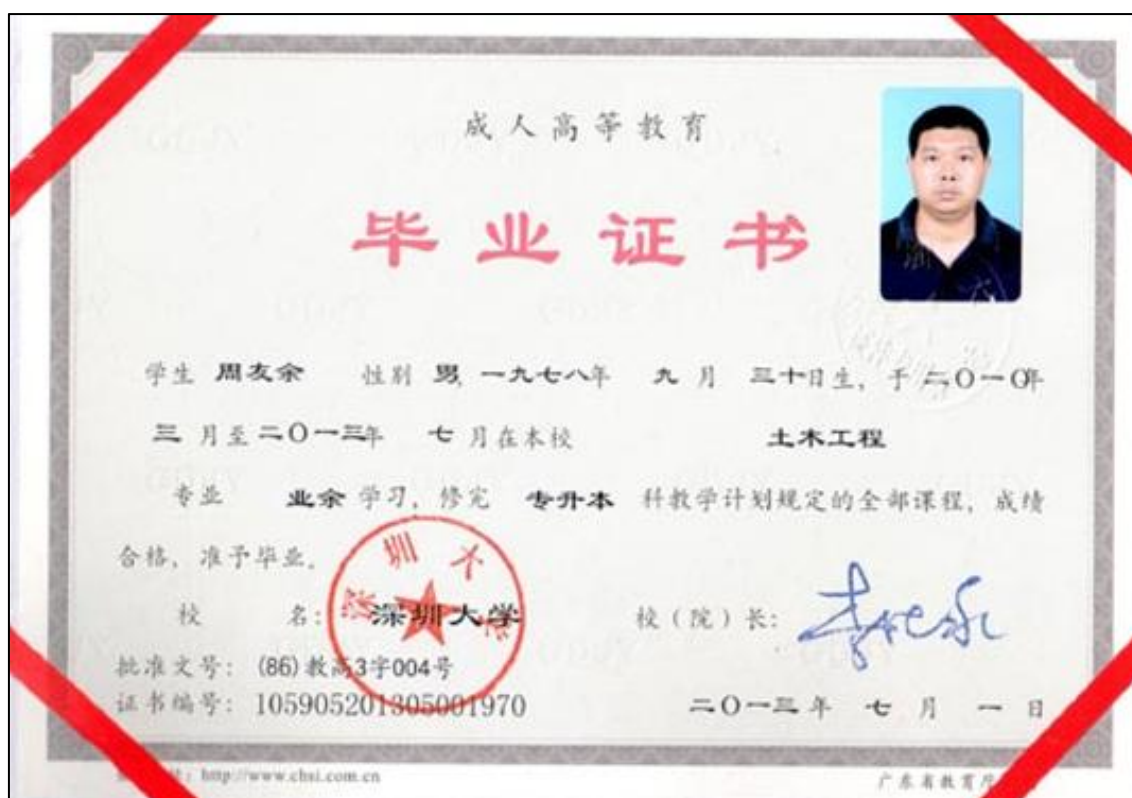 成人高等教育
毕业证书
学生 周友余 性别 男, 一九七八年 九 月 三十日生, 于 二〇一〇年
三 月至 二〇一三年 七 月在本校 土木工程
专业 业余 学习, 修完 专升本 科教学计划规定的全部课程, 成绩
合格, 准予毕业。
校 名: 深圳大学
校(院)长:
深圳大学
批准文号: (86)教高3字004号
证书编号: 105905201305001970
二〇一三年 七 月 一 日
http://www.chsi.com.cn
广东省教育厅